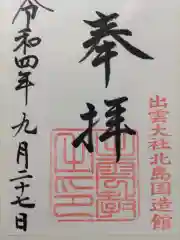 出雲大社北島国造館
奉拝
令和四年九月二十七日